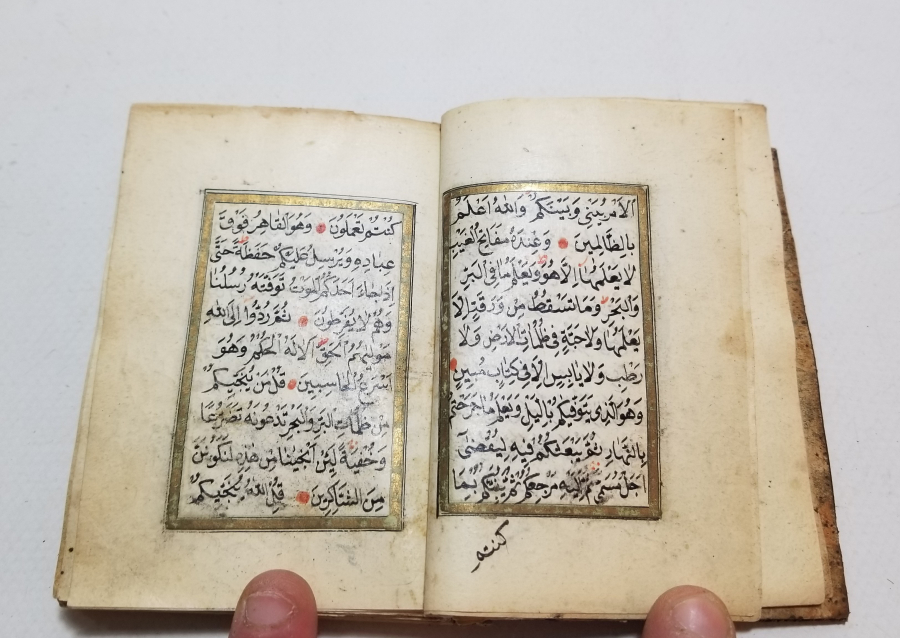 الْاَمْرُ بَيْنِي وَبَيْنَكُمْ وَاللهُ اَعْلَمُ
بِالظَّالِمِينَ وَعِنْدَهُ مَفَاتِحُ الْغَيْبِ
لَا يَعْلَمُهَا اِلَّا هُوَ وَيَعْلَمُ مَا فِي الْبَرِّ
وَالْبَحْرِ وَمَا تَسْقُطُ مِنْ وَرَقَةٍ اِلَّا
يَعْلَمُهَا وَلَا حَبَّةٍ فِي ظُلُمَاتِ الْاَرْضِ وَلَا
رَطْبٍ وَلَا يَابِسٍ اِلَّا فِي كِتَابٍ مُبِينٍ
وَهُوَ الَّذِي يَتَوَفّٰيكُمْ بِالَّيْلِ وَيَعْلَمُ مَا جَرَحْتُمْ
بِالنَّهَارِ ثُمَّ يَبْعَثُكُمْ فِيهِ لِيُقْضٰى
اَجَلٌ مُسَمًّى ثُمَّ اِلَيْهِ مَرْجِعُكُمْ ثُمَّ يُنَبِّئُكُمْ بِمَا
كنتم
كُنْتُمْ تَعْمَلُونَ وَهُوَ الْقَاهِرُ فَوْقَ
عِبَادِهِ وَيُرْسِلُ عَلَيْكُمْ حَفَظَةً حَتَّى
اِذَا جَاءَ اَحَدَكُمُ الْمَوْتُ تَوَفَّتْهُ رُسُلُنَا
وَهُمْ لَا يُفَرِّطُونَ ثُمَّ رُدُّوا اِلَى اللهِ
مَوْلٰيهُمُ الْحَقِّ اَلَا لَهُ الْحُكْمُ وَهُوَ
اَسْرَعُ الْحَاسِبِينَ قُلْ مَنْ يُنَجِّيكُمْ
مِنْ ظُلُمَاتِ الْبَرِّ وَالْبَحْرِ تَدْعُونَهُ تَضَرُّعًا
وَخُفْيَةً لَئِنْ اَنْجَيْنَا مِنْ هٰذِهِ لَنَكُونَنَّ
مِنَ الشَّاكِرِينَ قُلِ اللهُ يُنَجِّيكُمْ